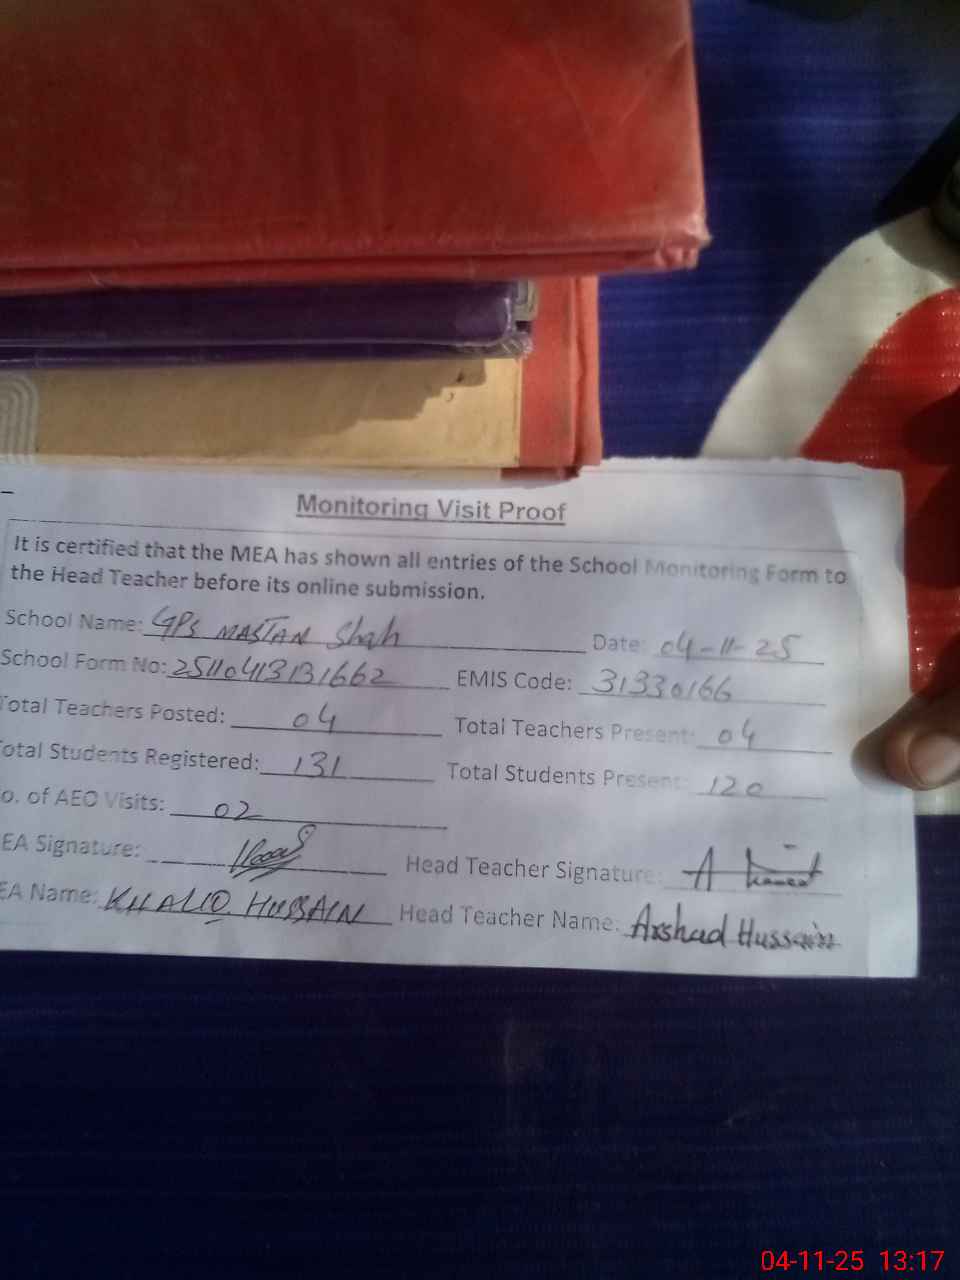 Monitoring Visit Proof
It is certified that the MEA has shown all entries of the School Monitoring Form to
the Head Teacher before its online submission.
School Name: GPS MASTAN Shah Date: 04-11-25
School Form No: 2511041313662 EMIS Code: 31330166
Total Teachers Posted: 04 Total Teachers Present: 04
Total Students Registered: 131 Total Students Present: 120
o. of AEO Visits: 02
EA Signature: Head Teacher Signature:
EA Name: KHALIQ HUSSAIN Head Teacher Name: Arshad Hussain
04-11-25 13:17